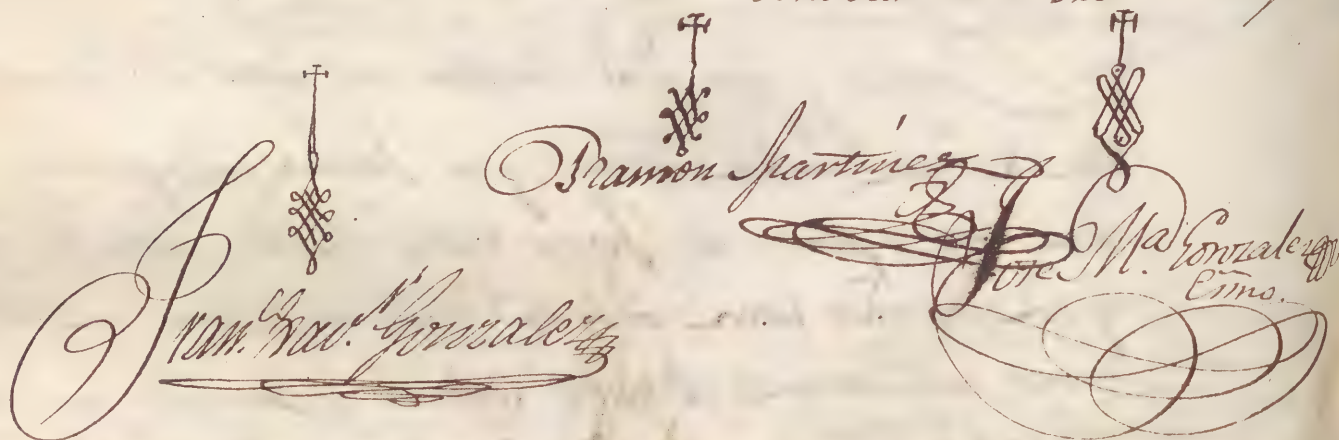 Ramon Martinez
Fran.co Xav.r Gonzalez
Jose M.a Gonzalez